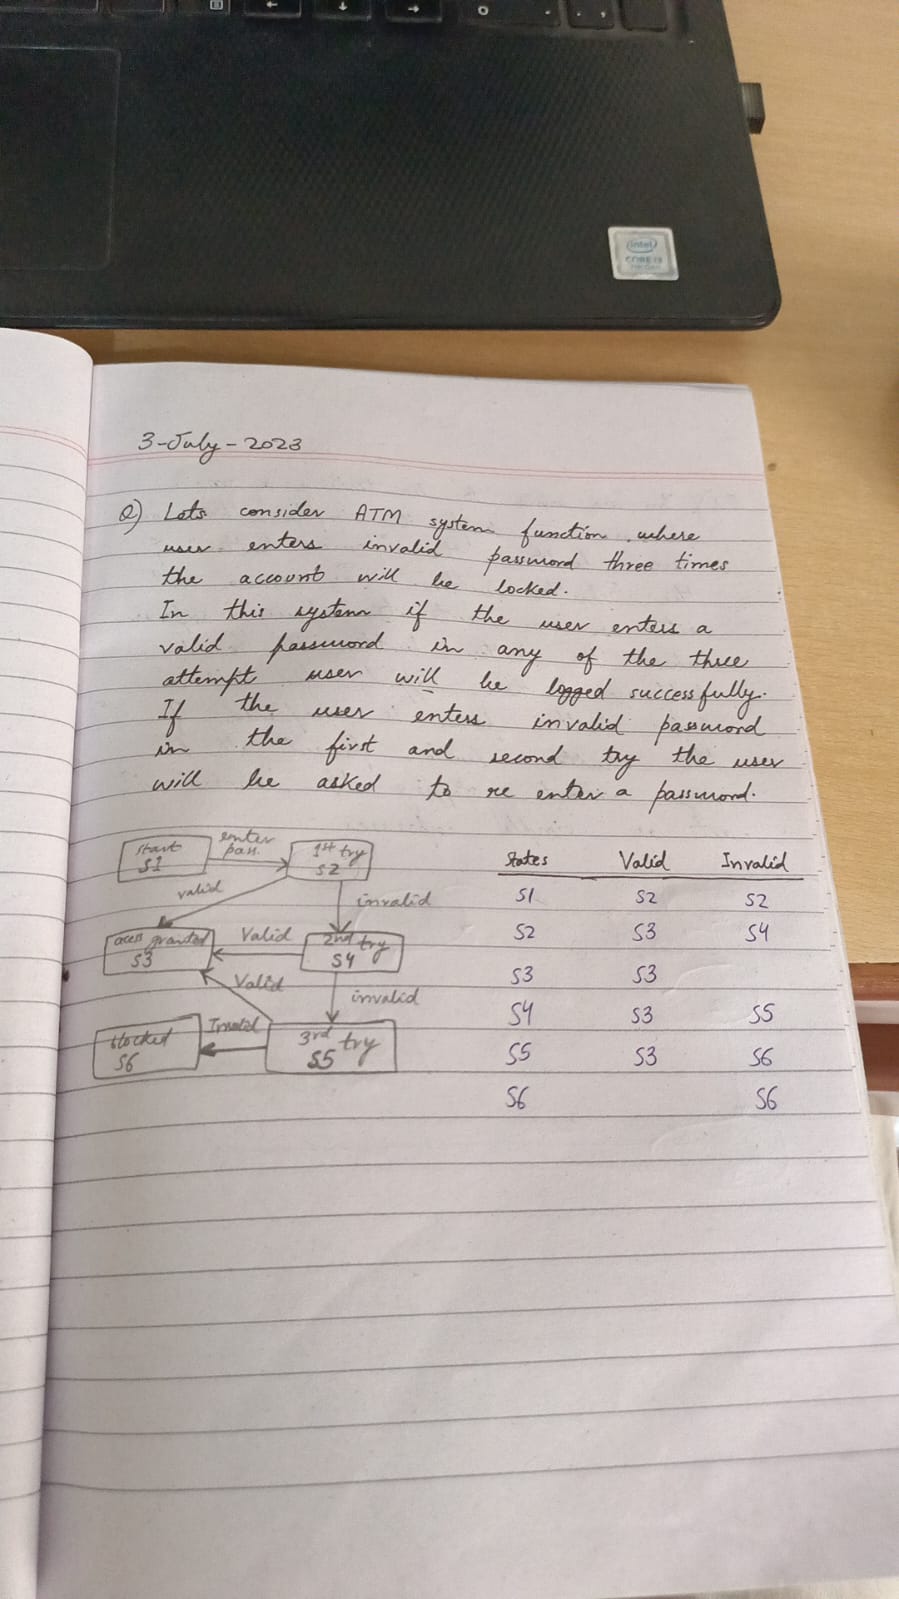 intel
CORE i3
3-July-2023
Q) Lets consider ATM system function where
user enters invalid password three times
the account will be locked.
In this system if the user enters a
valid password in any of the three
attempt user will be logged successfully.
If the user enters invalid password
in the first and second try the user
will be asked to re enter a password.
start
S1
enter
pass.
1st try
S2
valid
invalid
acess granted
S3
Valid
2nd try
S4
Valid
invalid
blocked
S6
Invalid
3rd try
S5
States Valid Invalid
S1 S2 S2
S2 S3 S4
S3 S3
S4 S3 S5
S5 S3 S6
S6 S6